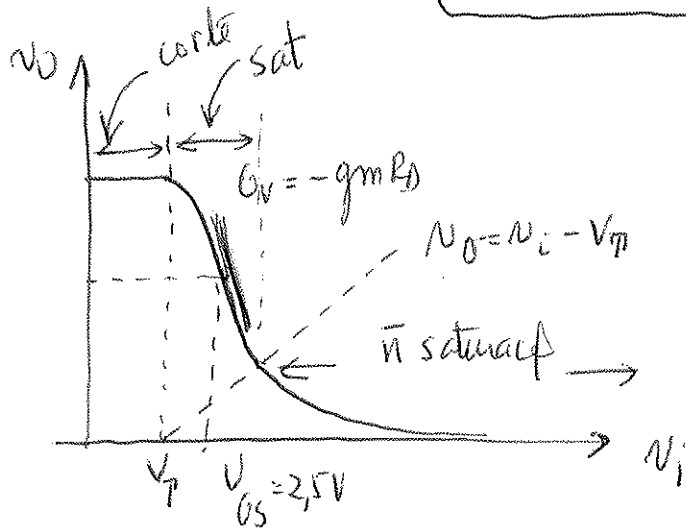 corte
sat
v₀
Gv = -gmRD
v₀ = vᵢ - VT
n̄ saturaçõ
VT
VGS = 2,5V
vᵢ